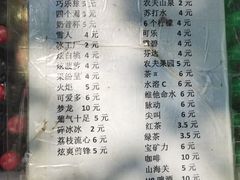 巧乐兹 5 元
四个圈 5 元
奶普杯 5 元
雪人 2 元
冰工厂 2 元
炫白桃 4 元
炫波萝 4 元
采纷呈 4 元
火炬 5 元
可爱多 6 元
梦龙 10 元
葡气十足 5 元
碎冰冰 2 元
荔枝流心 6 元
炫爽煎锋 5 元
农夫山泉 2 元
苏打水 4 元
6个柠檬 4 元
可乐 4 元
雪碧 4 元
芬达 4 元
农夫果园 5 元
茶π 6 元
水溶C 6 元
维他命水 6 元
脉动 6 元
尖叫 6 元
红茶 3.5 元
绿茶 3.5 元
宝矿力 6 元
咖啡 10 元
山海关 5 元
10 元